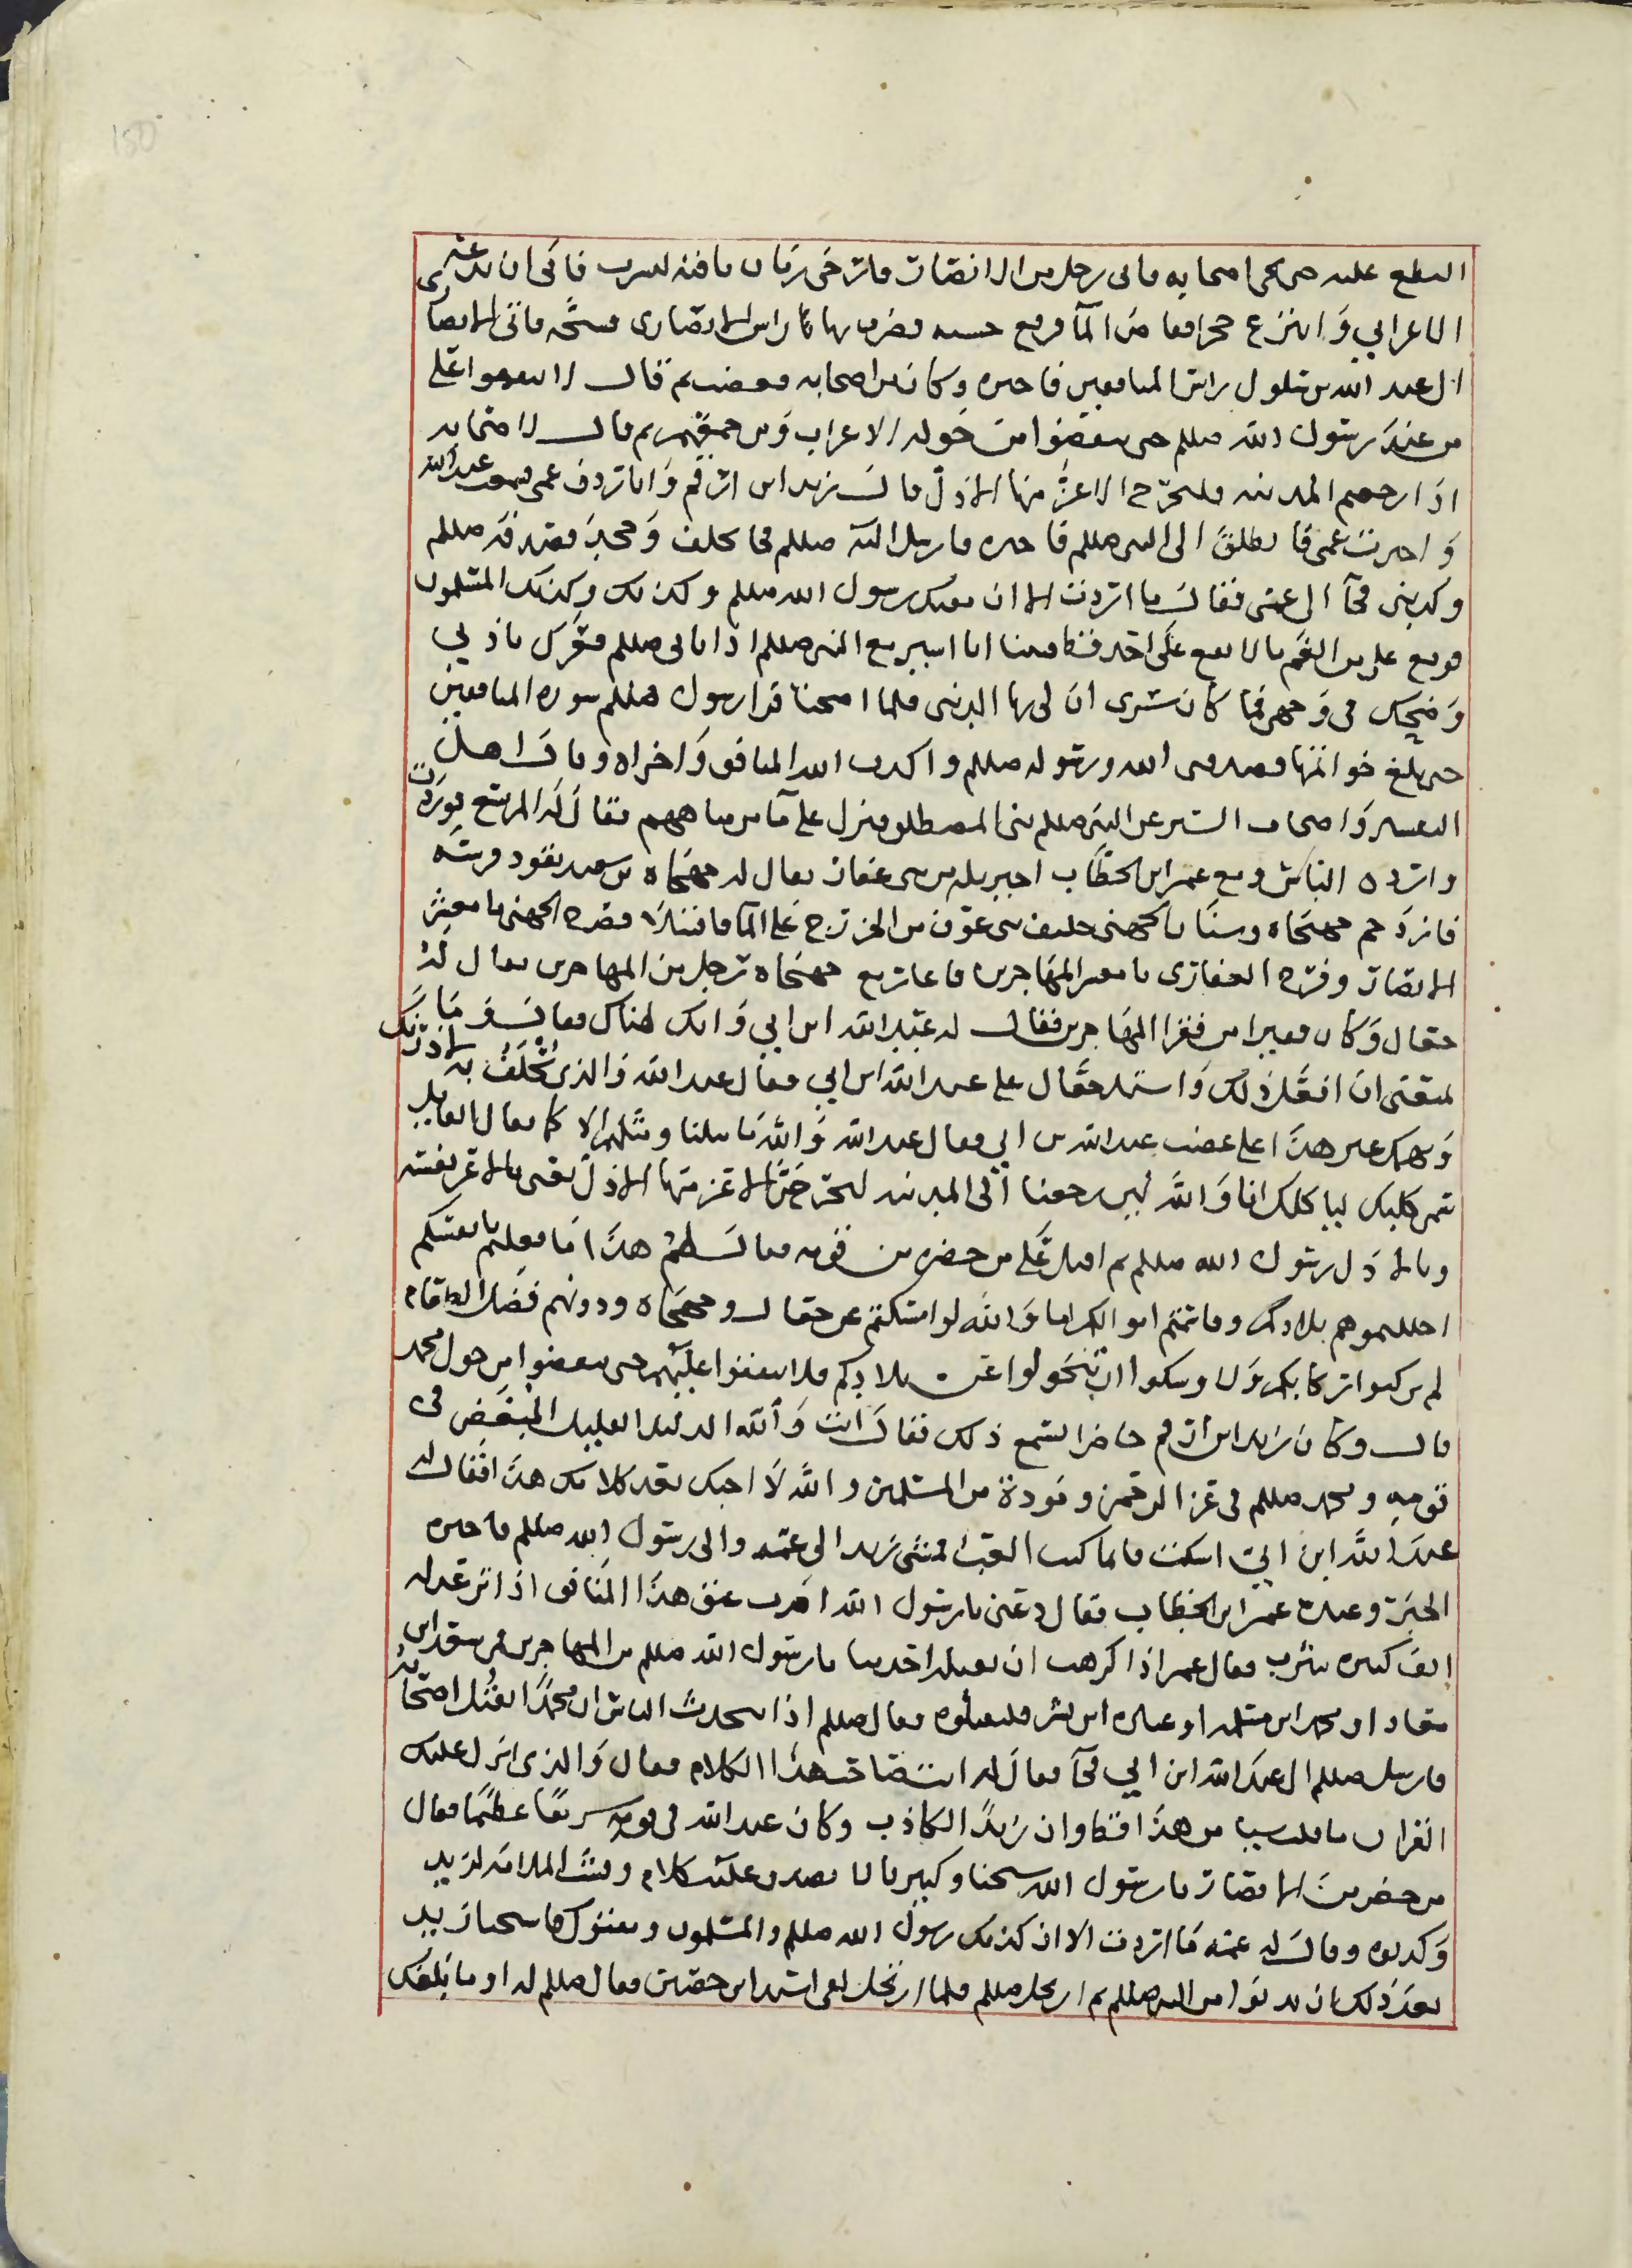 النطع عليه حتى يجي اصحابه فاتى رجل من الانصار فارخى زمام ناقته لتشرب فابى ان يدعه
الاعرابي وانتزع حجرا فغاض الما فرفع خشبه فضرب بها راس الانصاري فشجه فاتى الانصاري
الى عبد الله بن سلول راس المنافقين فاخبره وكان من اصحابه فغضب ثم قال لا تنفقوا على
من عند رسول الله صللم حتى ينفضوا من حوله الاعراب ومن ثم قال لاصحابه
اذا رجعتم المدينه فليخرج الاعز منها الاذل قال زيد ابن ارقم وانا ردف عمي فسمعت عبد الله
واخبرت عمي فانطلق الى النبي صللم فاخبره فارسل اليه صللم فجا فحلف وجحد فصدقه صللم
وكذبني فجا الى عمي فقال ما اردت الا ان مقتك رسول الله صللم وكذبك وكذبك المسلمون
فوقع علي من الغم ما لا يقع على احد فبينا انا اسير مع النبي صللم اذ اتاني صللم فعرك باذني
وضحك في وجهي فما كان يسرني ان لي بها الدنيا فلما اصبحنا قرا رسول صللم سوره المنافقين
حتى بلغ خواتمها فصدقني الله ورسوله صللم واكذب الله المنافق واخزاه وقال اهل
التفسير واصحاب السير غزا النبي صللم بني المصطلق ونزل على ما من مياههم يقال له المريسع فوردت
وارده الناس ومع عمر ابن الخطاب اجير له من بني غفار يقال له جهجاه بن سعيد يقود فرسه
فازدحم جهجاه وسنان الجهني حليف بني عوف من الخزرج على الما فاقتتلا فصرخ الجهني يا معشر
الانصار وصرخ الغفاري يا معشر المهاجرين فاعان جهجاه رجل من المهاجرين يقال له
جعال وكان فقيرا من فقرا المهاجرين فقال له عبد الله ابن ابي وانك لهناك فقال وما
يمنعني ان افعل ذلك واشتد جعال على عبد الله ابن ابي فقال عبد الله والذي يحلف به لاذرنك
ويهمك غير هذا على غضب عبد الله بن ابي فقال عبد الله والله ما مثلنا ومثلهم الا كما قال القايل
سمن كلبك لياكلك انا والله لين رجعنا الى المدينه ليخرجن الاعز منها الاذل يعني بالاعز نفسه
وبالاذل رسول الله صللم ثم اقبل على من حضره من قومه فقال لهم هذا ما فعلتم بانفسكم
احللتموهم بلادكم وقاسمتم اموالكم اما والله لو امسكتم عن جعال وجهجاه ودونهم فضل الطعام
لم يركبوا رقابكم ولاوشكوا ان يتحولوا عن بلادكم فلا تنفقوا عليهم حتى ينفضوا من حول محمد
قال وكان زيد ابن ارقم حاضرا يسمع ذلك فقال انت والله الذليل القليل المبغض في
قومه ومحمد صللم في عز الرحمن ومودة من المسلمين والله لا احبك بعد كلامك هذا فقال له
عبد الله ابن ابي اسكت فانما كنت العب فمشى زيد الى عمه والى رسول الله صللم فاخبره
الخبر وعنده عمر ابن الخطاب فقال دعني يا رسول الله اضرب عنق هذا المنافق اذا ترعد له
انف كثيره بيثرب فقال عمر اذا كرهت ان يقتله احد منا يا رسول الله صللم من المهاجرين فمر سعد ابن
معاذ او محمد ابن مسلمه او عباده ابن بشر فليقتلوه فقال صللم اذا يتحدث الناس ان محمدا يقتل اصحابه
فارسل صللم الى عبد الله ابن ابي فجا فقال له انت صاحب هذا الكلام فقال والذي انزل عليك
القران ما قلت شيا من هذا قط وان زيدا لكاذب وكان عبد الله في قومه شريفا عظيما فقال
من حضر من الانصار يا رسول الله شيخنا وكبيرنا لا يصدق عليه كلام وفشت الملامه لزيد
وكذبوه وقال له عمه ما اردت الا ان كذبك رسول الله صللم والمسلمون ومقتوك فاستحيا زيد
بعد ذلك ان يدنوا من النبي صللم ثم ارتحل صللم فلما ارتحل لقي اسيد ابن حضير فقال صللم له او ما بلغك